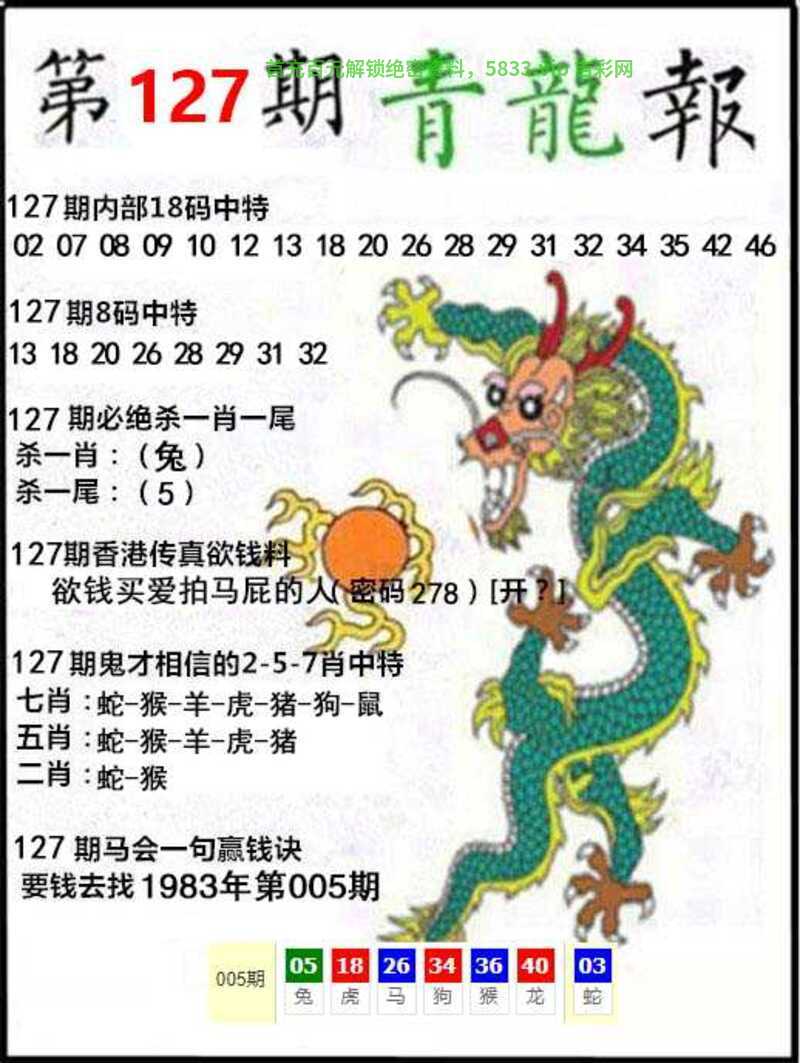 第127期青龍報
首充百元解锁绝密资料，5833.vip 百彩网
127期内部18码中特
02 07 08 09 10 12 13 18 20 26 28 29 31 32 34 35 42 46
127期8码中特
13 18 20 26 28 29 31 32
127期必绝杀一肖一尾
杀一肖：（兔）
杀一尾：（5）
127期香港传真欲钱料
欲钱买爱拍马屁的人（密码278）[开？]
127期鬼才相信的2-5-7肖中特
七肖：蛇-猴-羊-虎-猪-狗-鼠
五肖：蛇-猴-羊-虎-猪
二肖：蛇-猴
127期马会一句赢钱诀
要钱去找1983年第005期
005期 05 18 26 34 36 40 03
兔 虎 马 狗 猴 龙 蛇